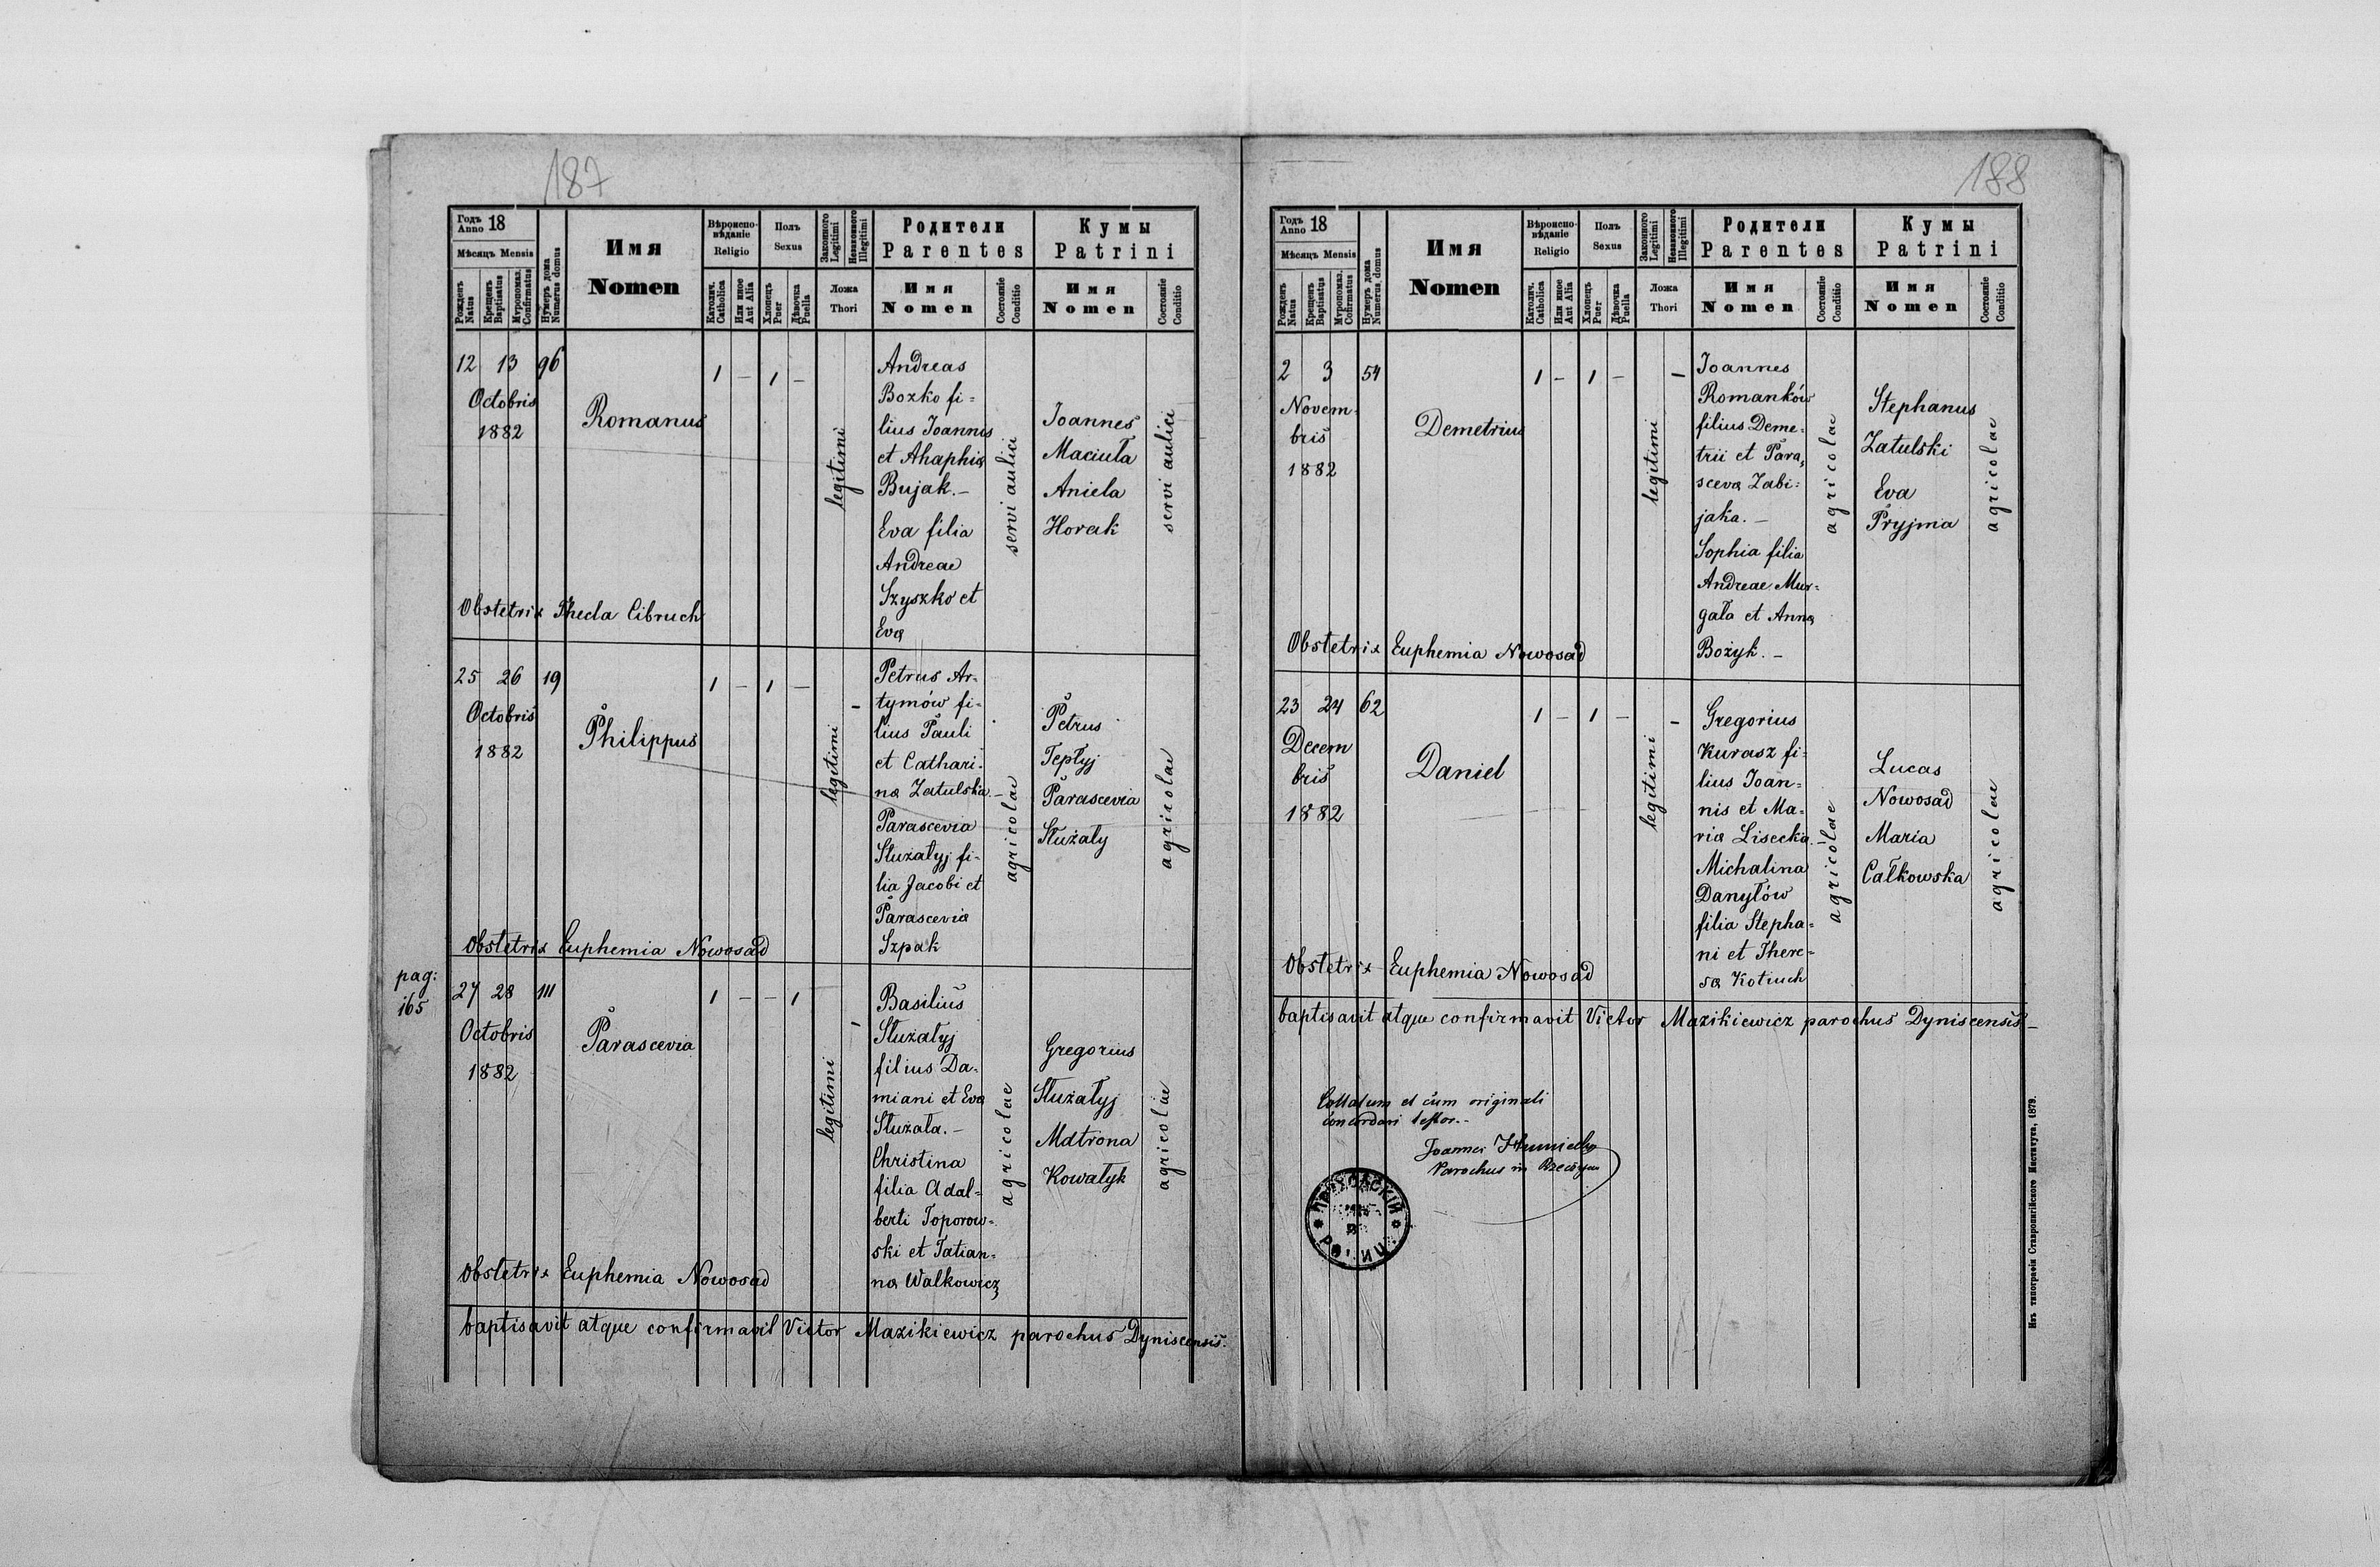 187
Годъ Anno 18
Мѣсяцъ Mensis
Рожденъ Natus
Крещенъ Baptisatus
Мѵропомаз. Confirmatus
Нумеръ дома Numerus domus
Имя
Nomen
Вѣроиспо-
вѣданіе
Religio
Католич. Catholica
Или иное Aut Alia
Полъ
Sexus
Хлопецъ Puer
Дѣвочка Puella
Законного Legitimi
Незаконного Illegitimi
Ложа
Thori
Родители
Parentes
Имя
Nomen
Состояніе Conditio
Кумы
Patrini
Имя
Nomen
Состояніе Conditio
12 13 96
Octobris
1882
Romanus
1 – 1 –
legitimi
Andreas
Bozko fi=
lius Joannis
et Ahaphia
Bujak.–
Eva filia
Andreae
Szyszko et
Eva
servi aulici
Joannes
Maciuła
Aniela
Horak
servi aulici
Obstetrix Thecla Cibruch
25 26 19
Octobris
1882
Philippus
1 – 1 –
legitimi –
Petrus Ar-
tymów fi-
lius Pauli
et Cathari-
na Zatulska.–
Parascevia
Służałyj fi-
lia Jacobi et
Parascevia
Szpak
agricolae
Petrus
Tepłyj
Parascevia
Służały
agricolae
Obstetrix Euphemia Nowosad
pag:
165
27 28 111
Octobris
1882
Parascevia
1 – – 1
legitimi –
Basilius
Służałyj
filius Da-
miani et Eva
Służała.–
Christina
filia Adal=
berti Toporow-
ski et Tatian=
na Walkowicz
agricolae
Gregorius
Służałyj
Matrona
Kowałyk
agricolae
Obstetrix Euphemia Nowosad
baptisavit atque confirmavit Victor Mazikiewicz parochus Dyniscensis.
188
Годъ Anno 18
Мѣсяцъ Mensis
Рожденъ Natus
Крещенъ Baptisatus
Мѵропомаз. Confirmatus
Нумеръ дома Numerus domus
Имя
Nomen
Вѣроиспо-
вѣданіе
Religio
Католич. Catholica
Или иное Aut Alia
Полъ
Sexus
Хлопецъ Puer
Дѣвочка Puella
Законного Legitimi
Незаконного Illegitimi
Ложа
Thori
Родители
Parentes
Имя
Nomen
Состояніе Conditio
Кумы
Patrini
Имя
Nomen
Состояніе Conditio
2 3 54
Novem-
bris
1882
Demetrius
1 – 1 –
legitimi –
Joannes
Romanków
filius Deme=
trii et Para=
sceva Zabi=
jaka.–
Sophia filia
Andreae Mur-
gała et Anna
Bożyk.–
agricolae
Stephanus
Zatulski
Eva
Pryjma
agricolae
Obstetrix Euphemia Nowosad
23 24 62
Decem
bris
1882
Daniel
1 – 1 –
legitimi –
Gregorius
Kurasz fi=
lius Joan=
nis et Ma=
ria Lisecka.–
Michalina
Danyłów
filia Stepha=
ni et There=
sa Kotiuch
agricolae
Lucas
Nowosad
Maria
Całkowska
agricolae
Obstetrix Euphemia Nowosad
baptisavit atque confirmavit Victor Mazikiewicz parochus Dyniscensis–
Collatum et cum originali
concordari testor.–
Joannes
Parochus in
Изъ типографіи Ставропигійского Института, 1879.